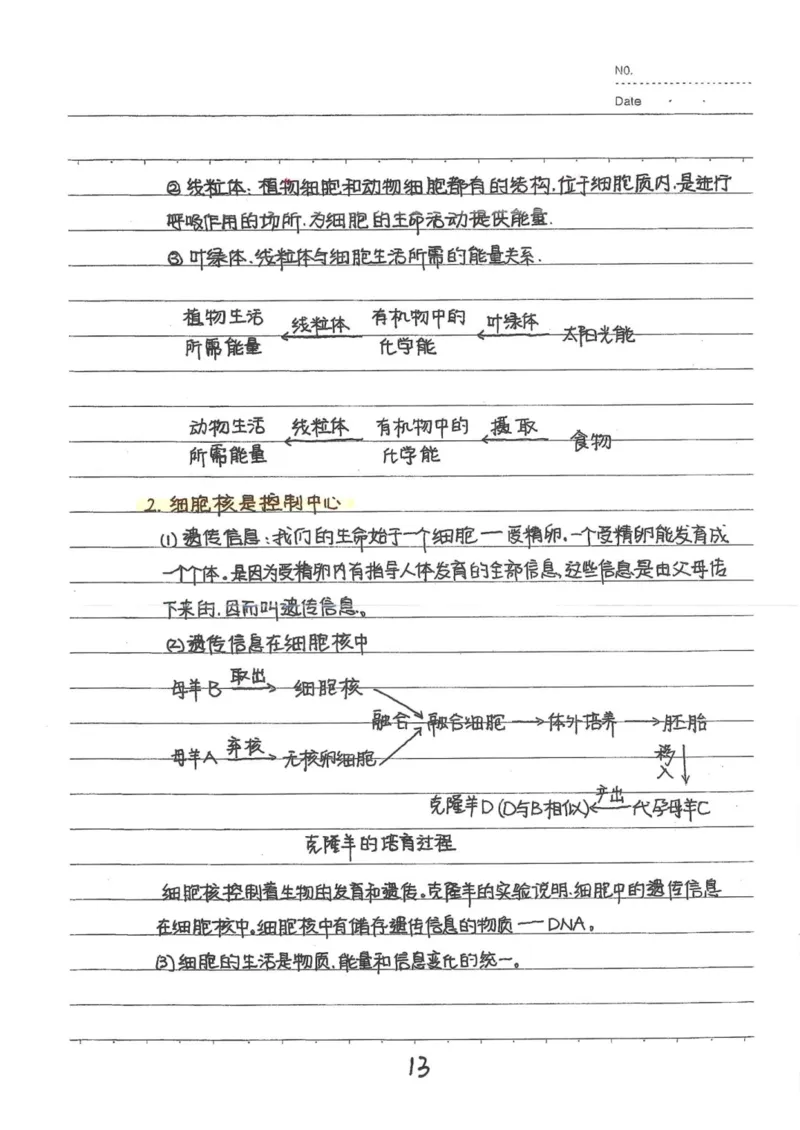 NO.
Date
②线粒体：植物细胞和动物细胞都有的结构，位于细胞质内，是进行
呼吸作用的场所，为细胞的生命活动提供能量．
③叶绿体、线粒体与细胞生活所需的能量关系．
植物生活 线粒体 有机物中的 叶绿体
所需能量 ← 化学能 ← 太阳光能
动物生活 线粒体 有机物中的 摄取
所需能量 ← 化学能 ← 食物
2. 细胞核是控制中心
(1)遗传信息：我们的生命始于一个细胞一受精卵．一个受精卵能发育成
一个个体．是因为受精卵内有指导人体发育的全部信息，这些信息是由父母传
下来的，因而叫遗传信息。
(2)遗传信息在细胞核中
母羊B 取出→ 细胞核
融合→融合细胞→体外培养→胚胎
母羊A 弃核→ 无核卵细胞
移入↓
克隆羊D(D与B相似)←产出 代孕母羊C
克隆羊的培育过程
细胞核控制着生物的发育和遗传。克隆羊的实验说明，细胞中的遗传信息
在细胞核中。细胞核中有储存遗传信息的物质——DNA。
(3)细胞的生活是物质，能量和信息变化的统一。
13